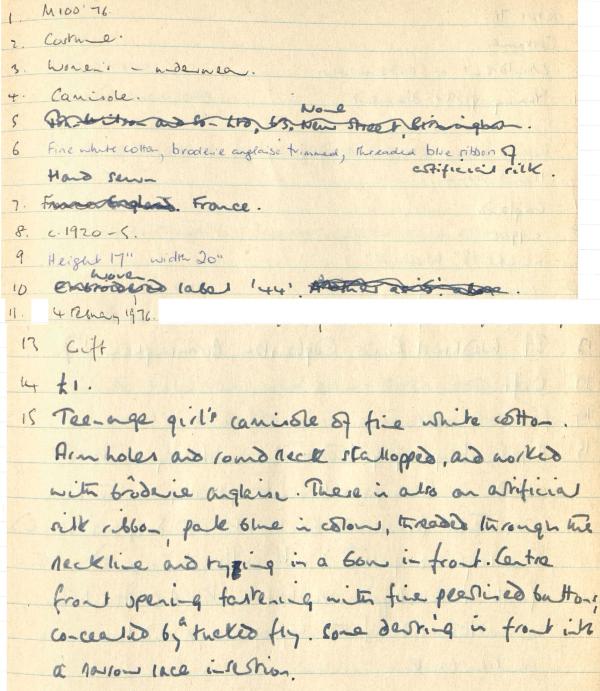 1. M100'76
2. Costume.
3. Women's – underwear.
4. Camisole.
None
5 and Son Ltd, 63, New Street, Birmingham.
6 Fine white cotton, broderie anglaise trimmed, threaded blue ribbon of
artificial silk.
Hand sewn
7. France England. France.
8. c.1920-5.
9 Height 17" width 20"
woven
10 Embroidered label '44'.
11. 4 February 1976.
13 Gift
14 £1.
15 Teenage girl's camisole of fine white cotton.
Armholes and round neck scallopped, and worked
with broderie anglaise. There is also an artificial
silk ribbon, pale blue in colour, threaded through the
neckline and tying in a bow in front. Centre
front opening fastening with five buttons,
concealed by a tucked fly. Some in front
a narrow lace insertion.